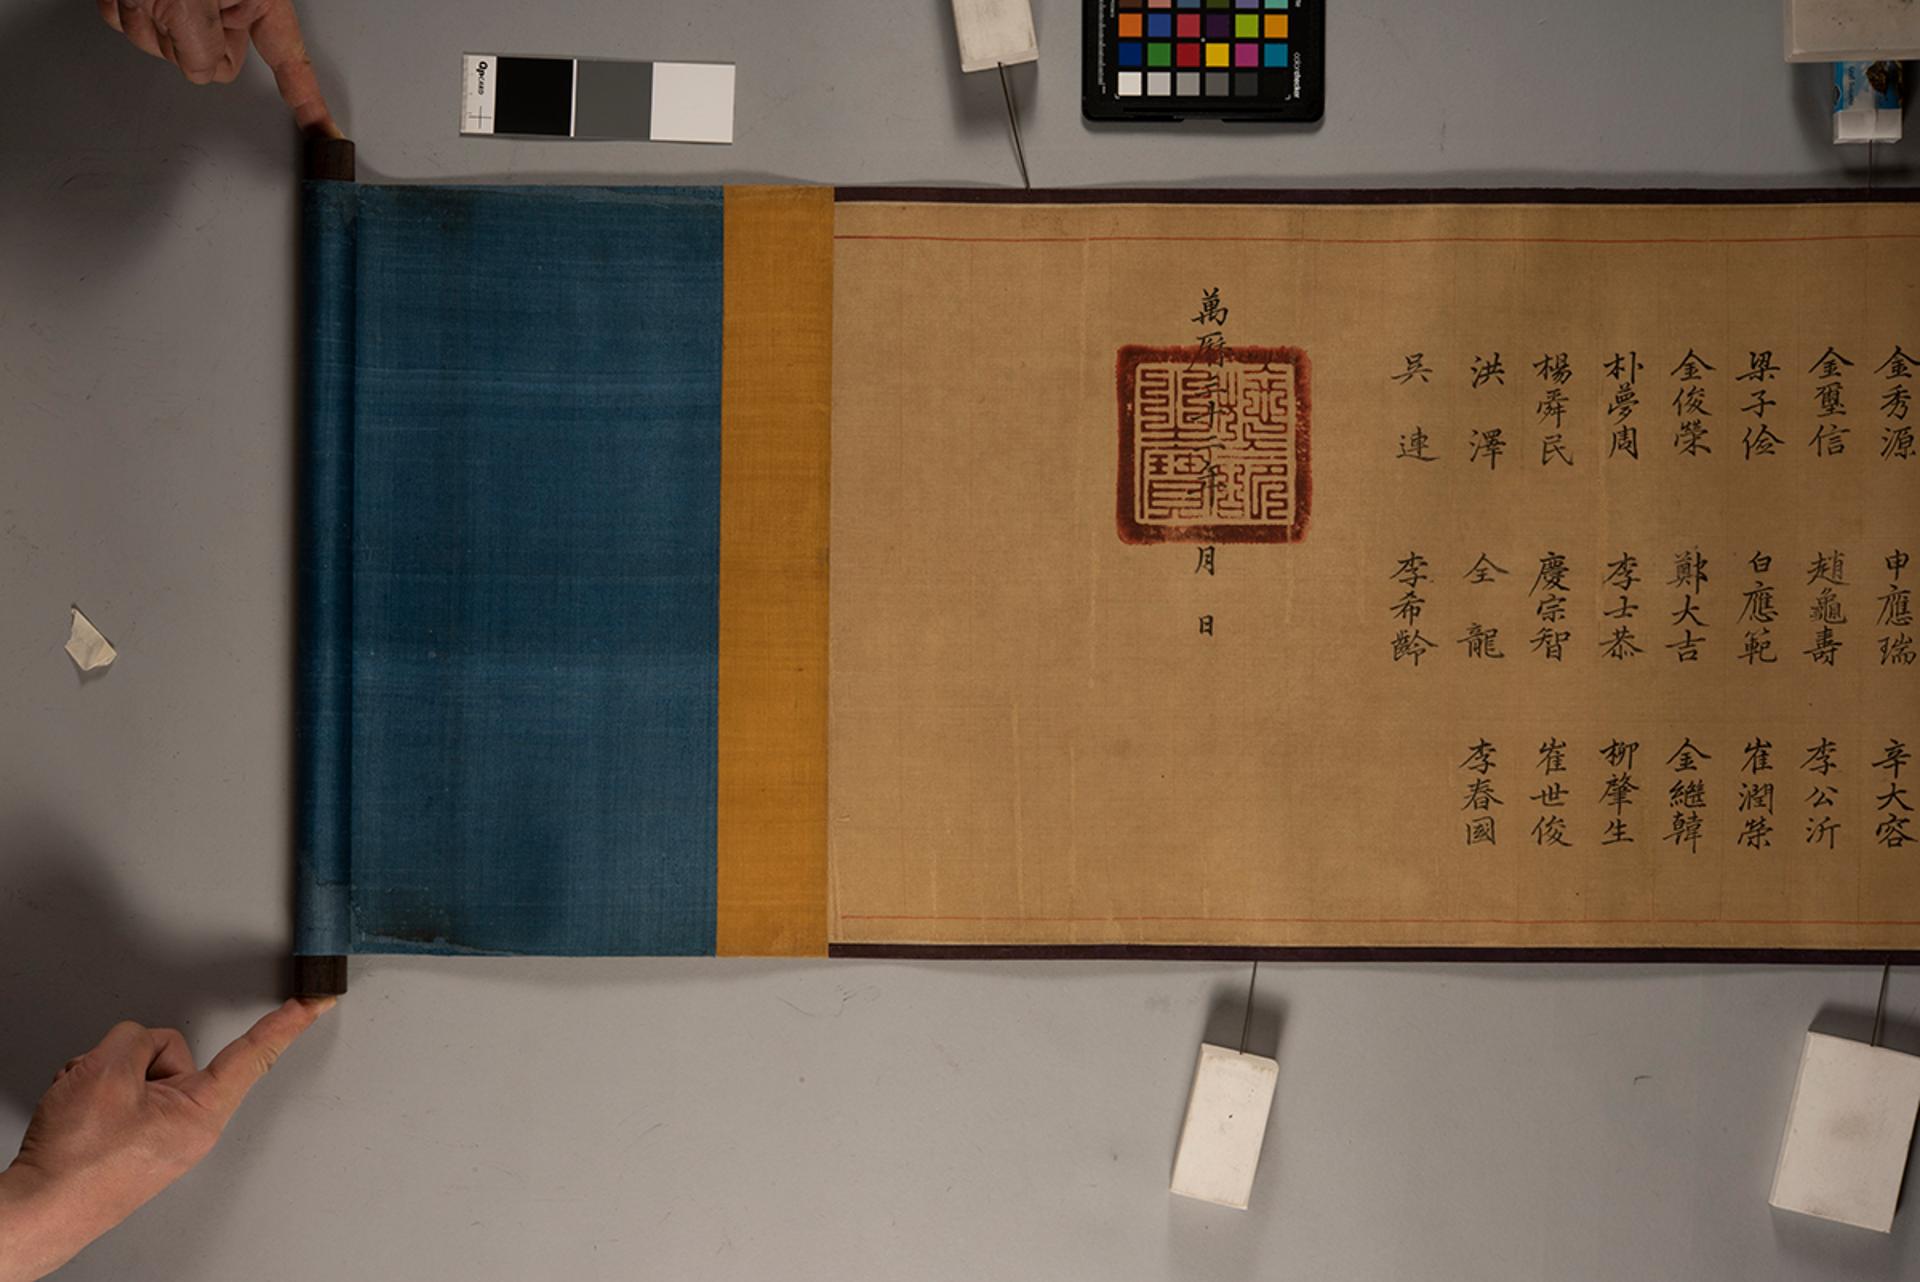 金秀源 申應瑞 辛大容
金璽信 趙龜壽 李公沂
梁子儉 白應範 崔潤榮
金俊榮 鄭大吉 金繼韓
朴夢周 李士恭 柳肇生
楊舜民 慶宗智 崔世俊
洪澤 全龍 李春國
吳連 李希齡
萬曆三十二年 月 日
OpCARD
colorchecker